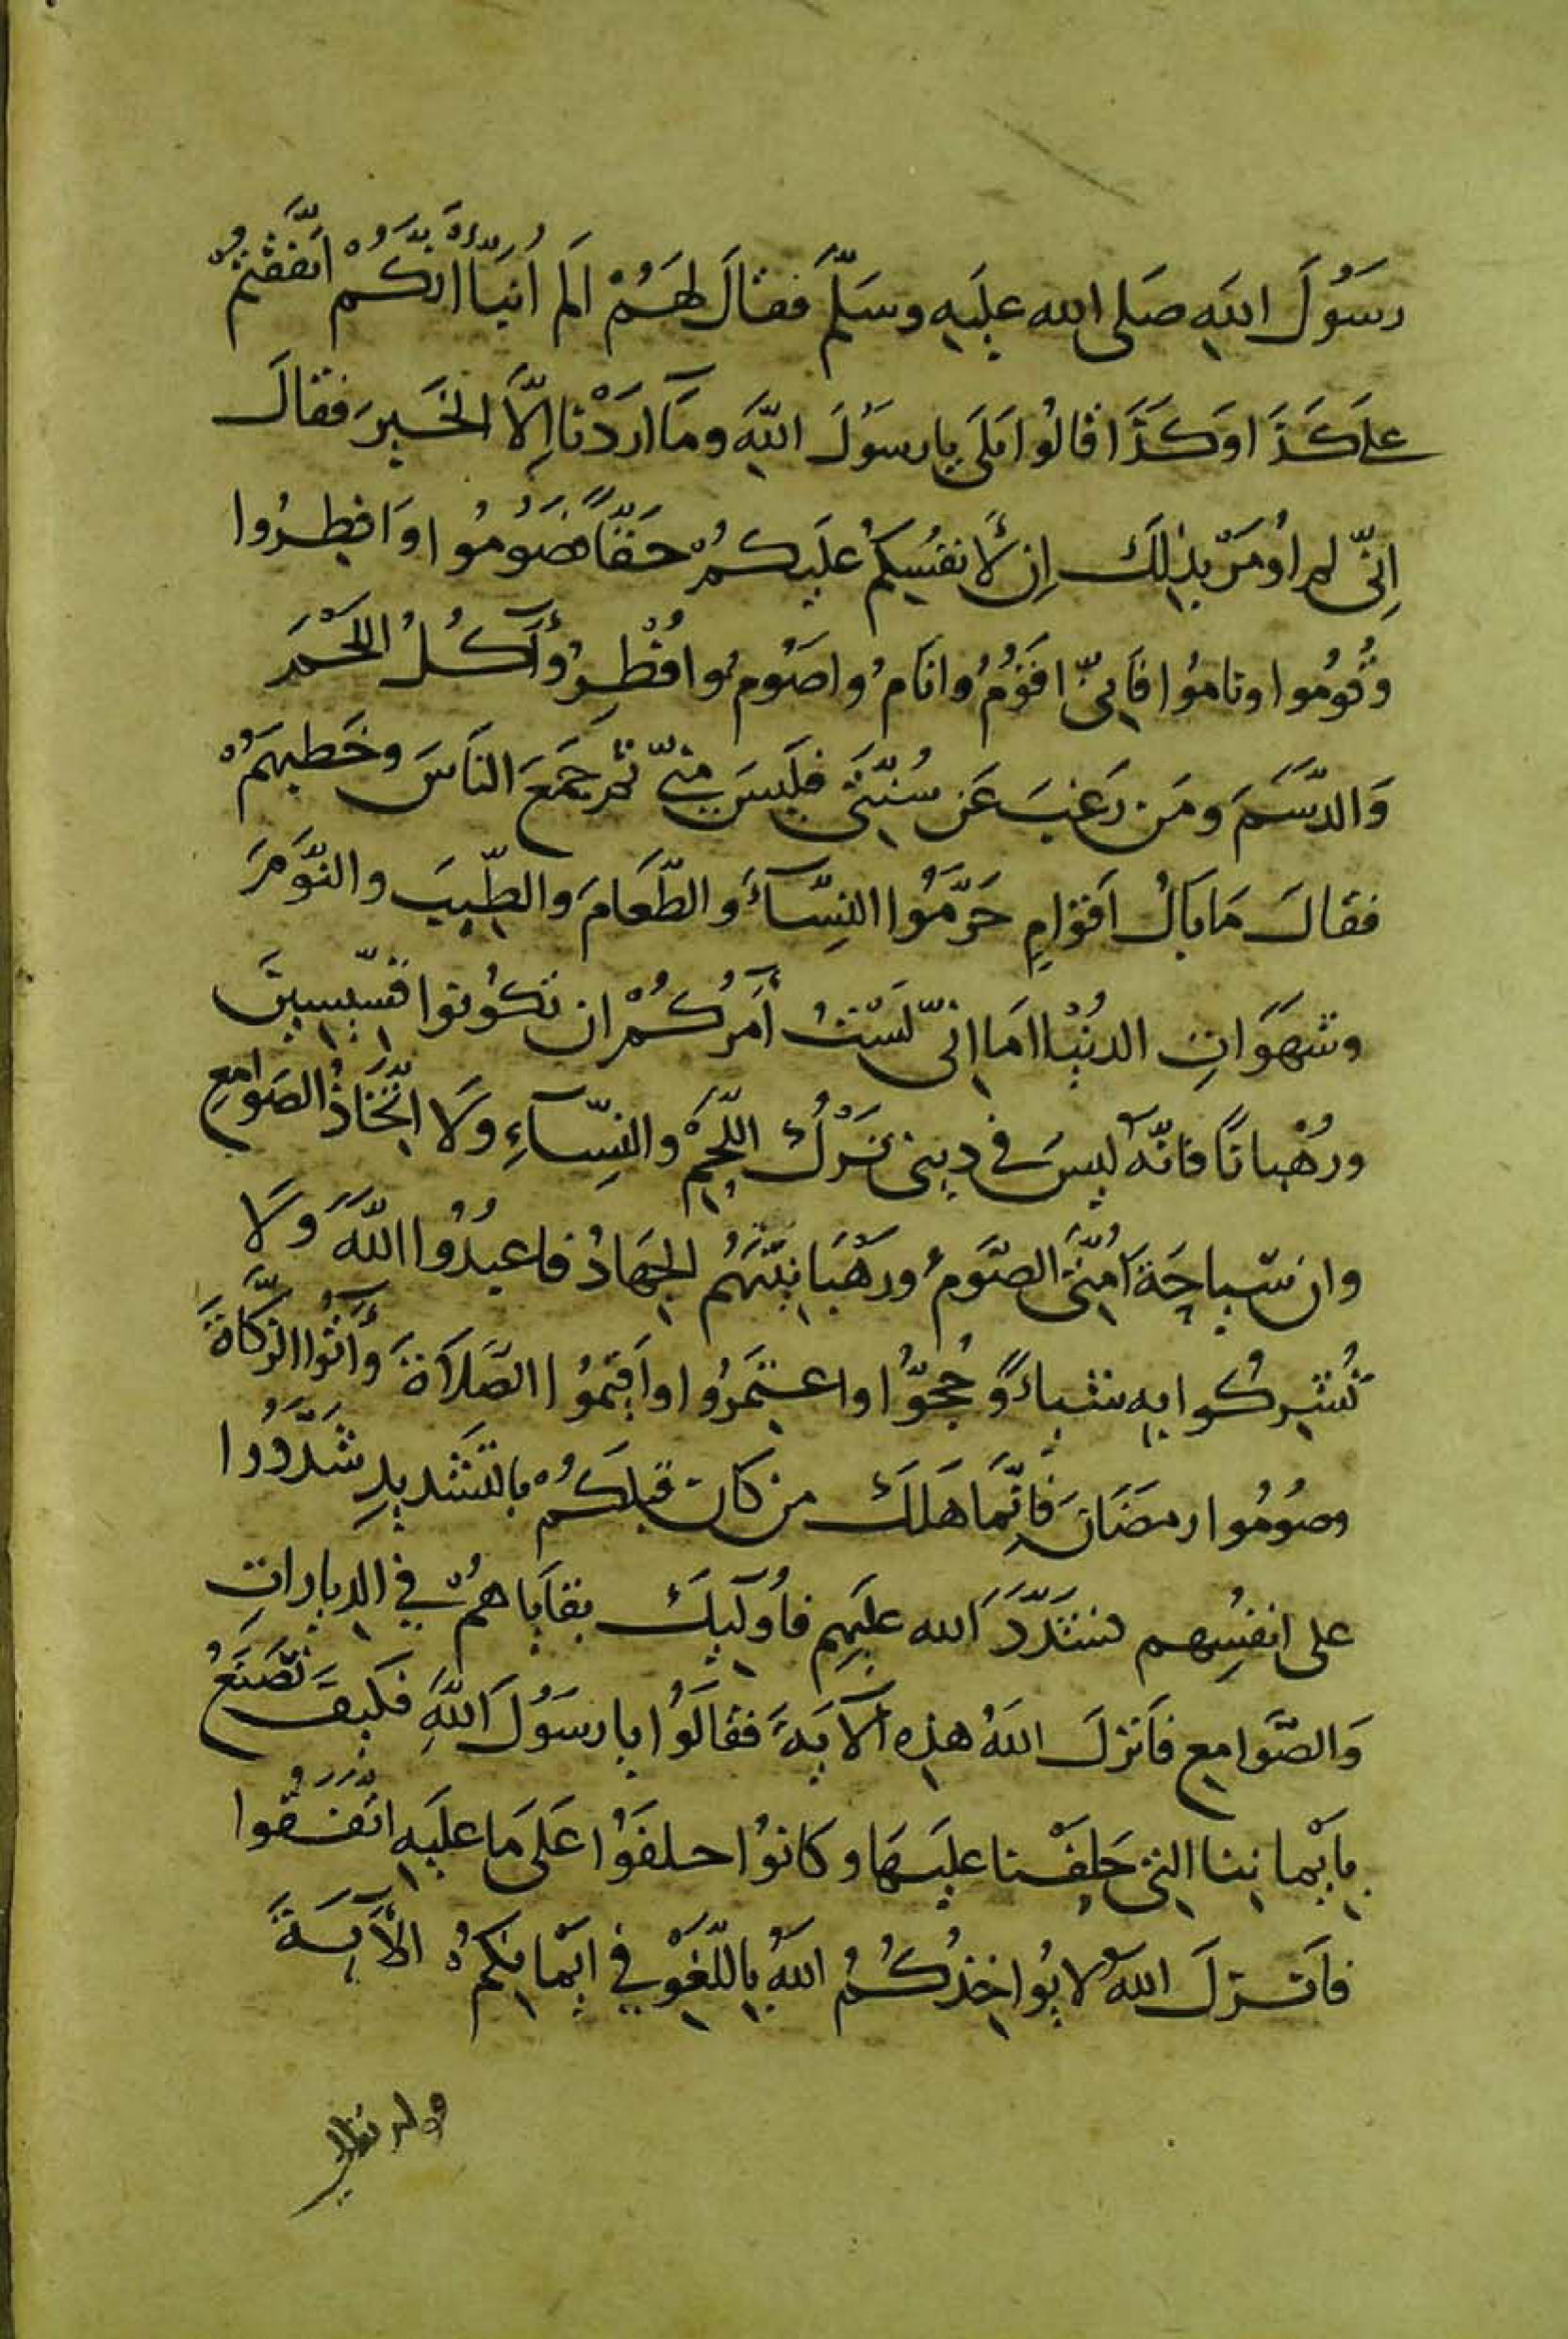 رَسُولَ اللهِ صَلى الله عليهِ وسَلَّمَ فقالَ لهَمُ الَم اُنبَّاأنَّكُمْ اتَّفَقْتُمْ
على كَذَا وَكَذَا قالُوا بلَى يارسُولَ اللهِ ومَآ ارَدْنا اِلَّا الخَيرَ فقالَ
اِنّى لم اُومَرْ بذلِكَ اِن لَّأنفُسِكُم علَيكُمْ حَقّاً فصُومُوا وَافطِرُوا
وَقُومُوا ونامُوا فَاِنّى اقَوُمُ وانَامُ واصَوُمُ وافُطِرُ وآكُلُ اللَحْمَ
وَالدَّسَمَ ومَن رَغبَ عَن سُنَّتى فلَيسَ منّى ثم جمَعَ النَاسَ وخَطبهَمُ
فقالَ مَا بَالُ اَقوَامٍ حَرَّمُوا النِسَّآءَ والطَّعَامَ والطِّيبَ والنَّومَ
وشَهَوَاتِ الدنُيْا امَا انّى لَسْتُ أَمُركُمْ ان تكوُنوا قسّيسِينَ
ورُهْباناً فانَّه ليسَ في دينى تَرْكُ اللَّحِمْ والنِسّآءِ ولَا اتّخَاذُ الصَوامِع
وان سّياحَةَ اُمَّتى الصَّومُ ورَهْبَانيتَّهَمُ الجِهَادُ فاعبدُوا اللّهَ وَلَا
تُشرِكُوا بهِ شيأً وَحُجّوُا واعتَمرُوا واَقيمُوا الصَّلاَةَ وَأتُوا الزَّكَاةَ
وصُومُوا رمضَانَ فَاِنَّما هَلَكَ من كانَ قبلَكُمْ بالتشَديدِ شَدَّدُوا
على انفسُهِم فشَدَّدَ الله علَيهِم فاُولَآيكَ بقاياهُمْ في الديارَاتِ
وَالصَّوامِع فاَنزلَ اللهُ هذِه الآيَةَ فقالَوُا يا رسَوُلَ اللهِ فَكيفَ نصَنعُ
باَيْماننِا التى حَلفْنا علَيهَا وكانوُا حلفَوُا عَلَى مَا علَيهِ اتّفَقوُا
فاَنزلَ اللهُ لا يُواخِذُكُمُ اللهُ باللّغَوْ في ايْمانِكُمُ الأَيةَ